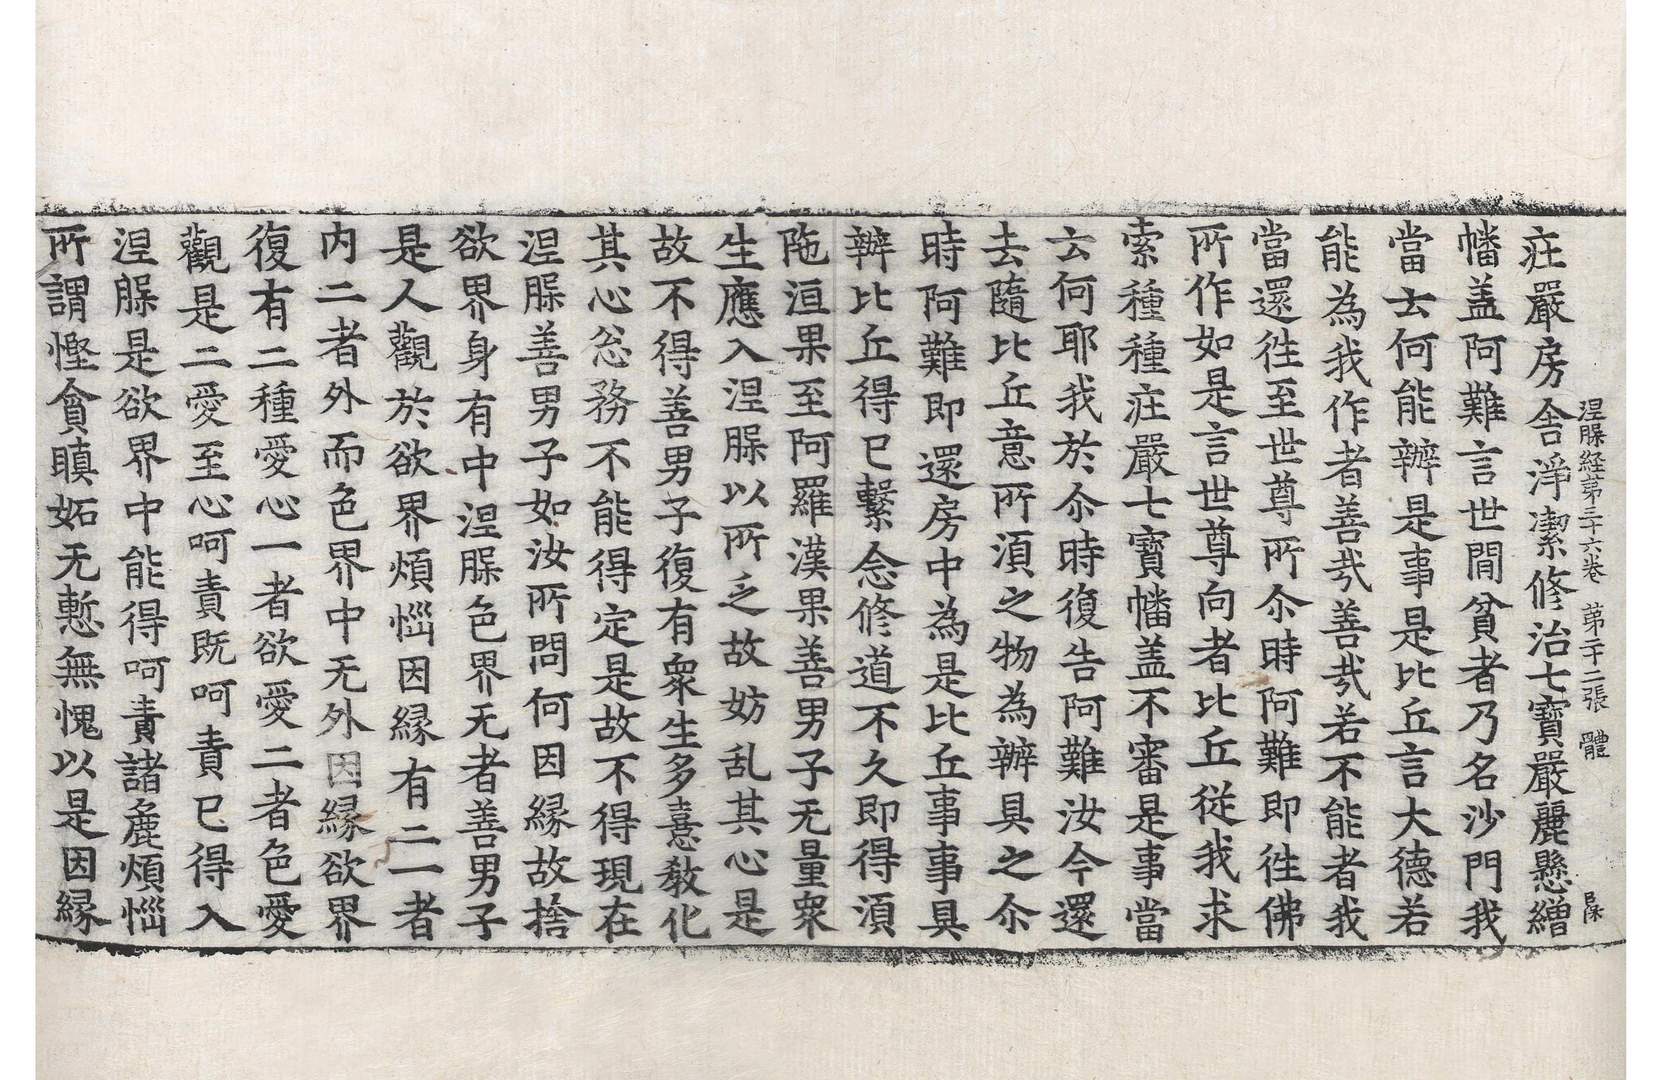 涅槃経第三十六卷　第二十二張　體
庄嚴房舍淨潔修治七寶嚴麗懸繒
幡盖阿難言世間貧者乃名沙門我
當去何能辦是事是比丘言大德若
能為我作者善㢤善㢤若不能者我
當還徃至世尊所尒時阿難即徃佛
所作如是言世尊向者比丘従我求
索種種庄嚴七寶幡盖不審是事當
云何耶我於尒時復告阿難汝今還
去隨比丘意所湏之物為辦具之尒
時阿難即還房中為是比丘事事具
辦比丘得已繫念修道不久即得湏
陁洹果至阿羅漢果善男子无量衆
生應入涅槃以所乏故妨乱其心是
故不得善男子復有衆生多憙敎化
其心忩務不能得定是故不得現在
涅槃善男子如汝所問何因縁故捨
欲界身有中涅槃色界无者善男子
是人觀於欲界煩惱因縁有二一者
内二者外而色界中无外因縁欲界
復有二種愛心一者欲愛二者色愛
觀是二愛至心呵責既呵責已得入
涅槃是欲界中能得呵責諸麁煩惱
所謂慳貪瞋妬无慙無愧以是因縁